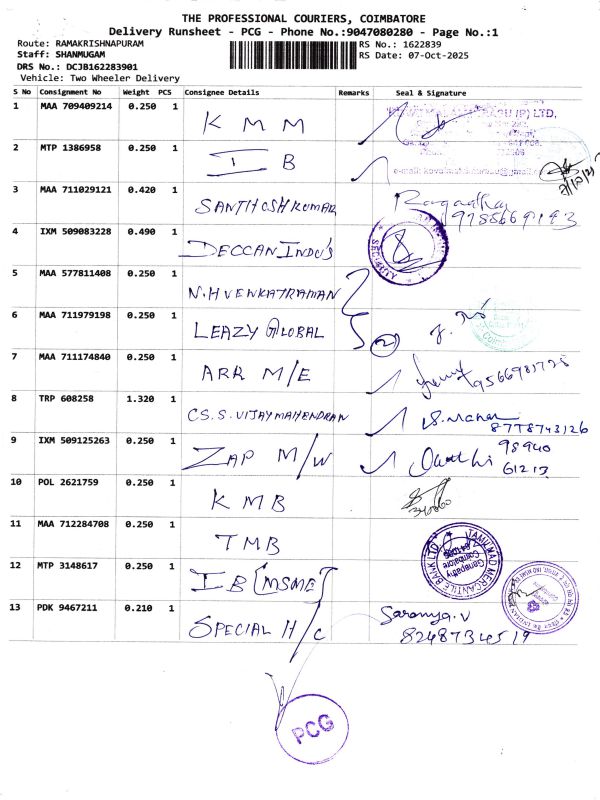 THE PROFESSIONAL COURIERS, COIMBATORE
Delivery Runsheet - PCG - Phone No.:9047080280 - Page No.:1
Route: RAMAKRISHNAPURAM
Staff: SHANMUGAM
DRS No.: DCJB162283901
Vehicle: Two Wheeler Delivery
RS No.: 1622839
RS Date: 07-Oct-2025
S No Consignment No Weight PCS Consignee Details Remarks Seal & Signature
1 MAA 709409214 0.250 1 KMM
2 MTP 1386958 0.250 1 IB
3 MAA 711029121 0.420 1 SANTHOSH KUMAR 9788669193
4 IXM 509083228 0.490 1 DECCAN INDU'S SECURITY
5 MAA 577811408 0.250 1 N.H VENKATRAMAN
6 MAA 711979198 0.250 1 LEAZY GLOBAL 2
7 MAA 711174840 0.250 1 ARR M/E 9566981725
8 TRP 608258 1.320 1 CS.S.VIJAYMAHENDRAN 8778743126
9 IXM 509125263 0.250 1 ZAP M/W 98940
61213
10 POL 2621759 0.250 1 KMB
11 MAA 712284708 0.250 1 TMB TAMILNAD MERCANTILE BANK LTD
Ganapathy
Coimbatore
12 MTP 3148617 0.250 1 IB [MSME]
13 PDK 9467211 0.210 1 SPECIAL H/C Saranya.V
8248734519
PCG